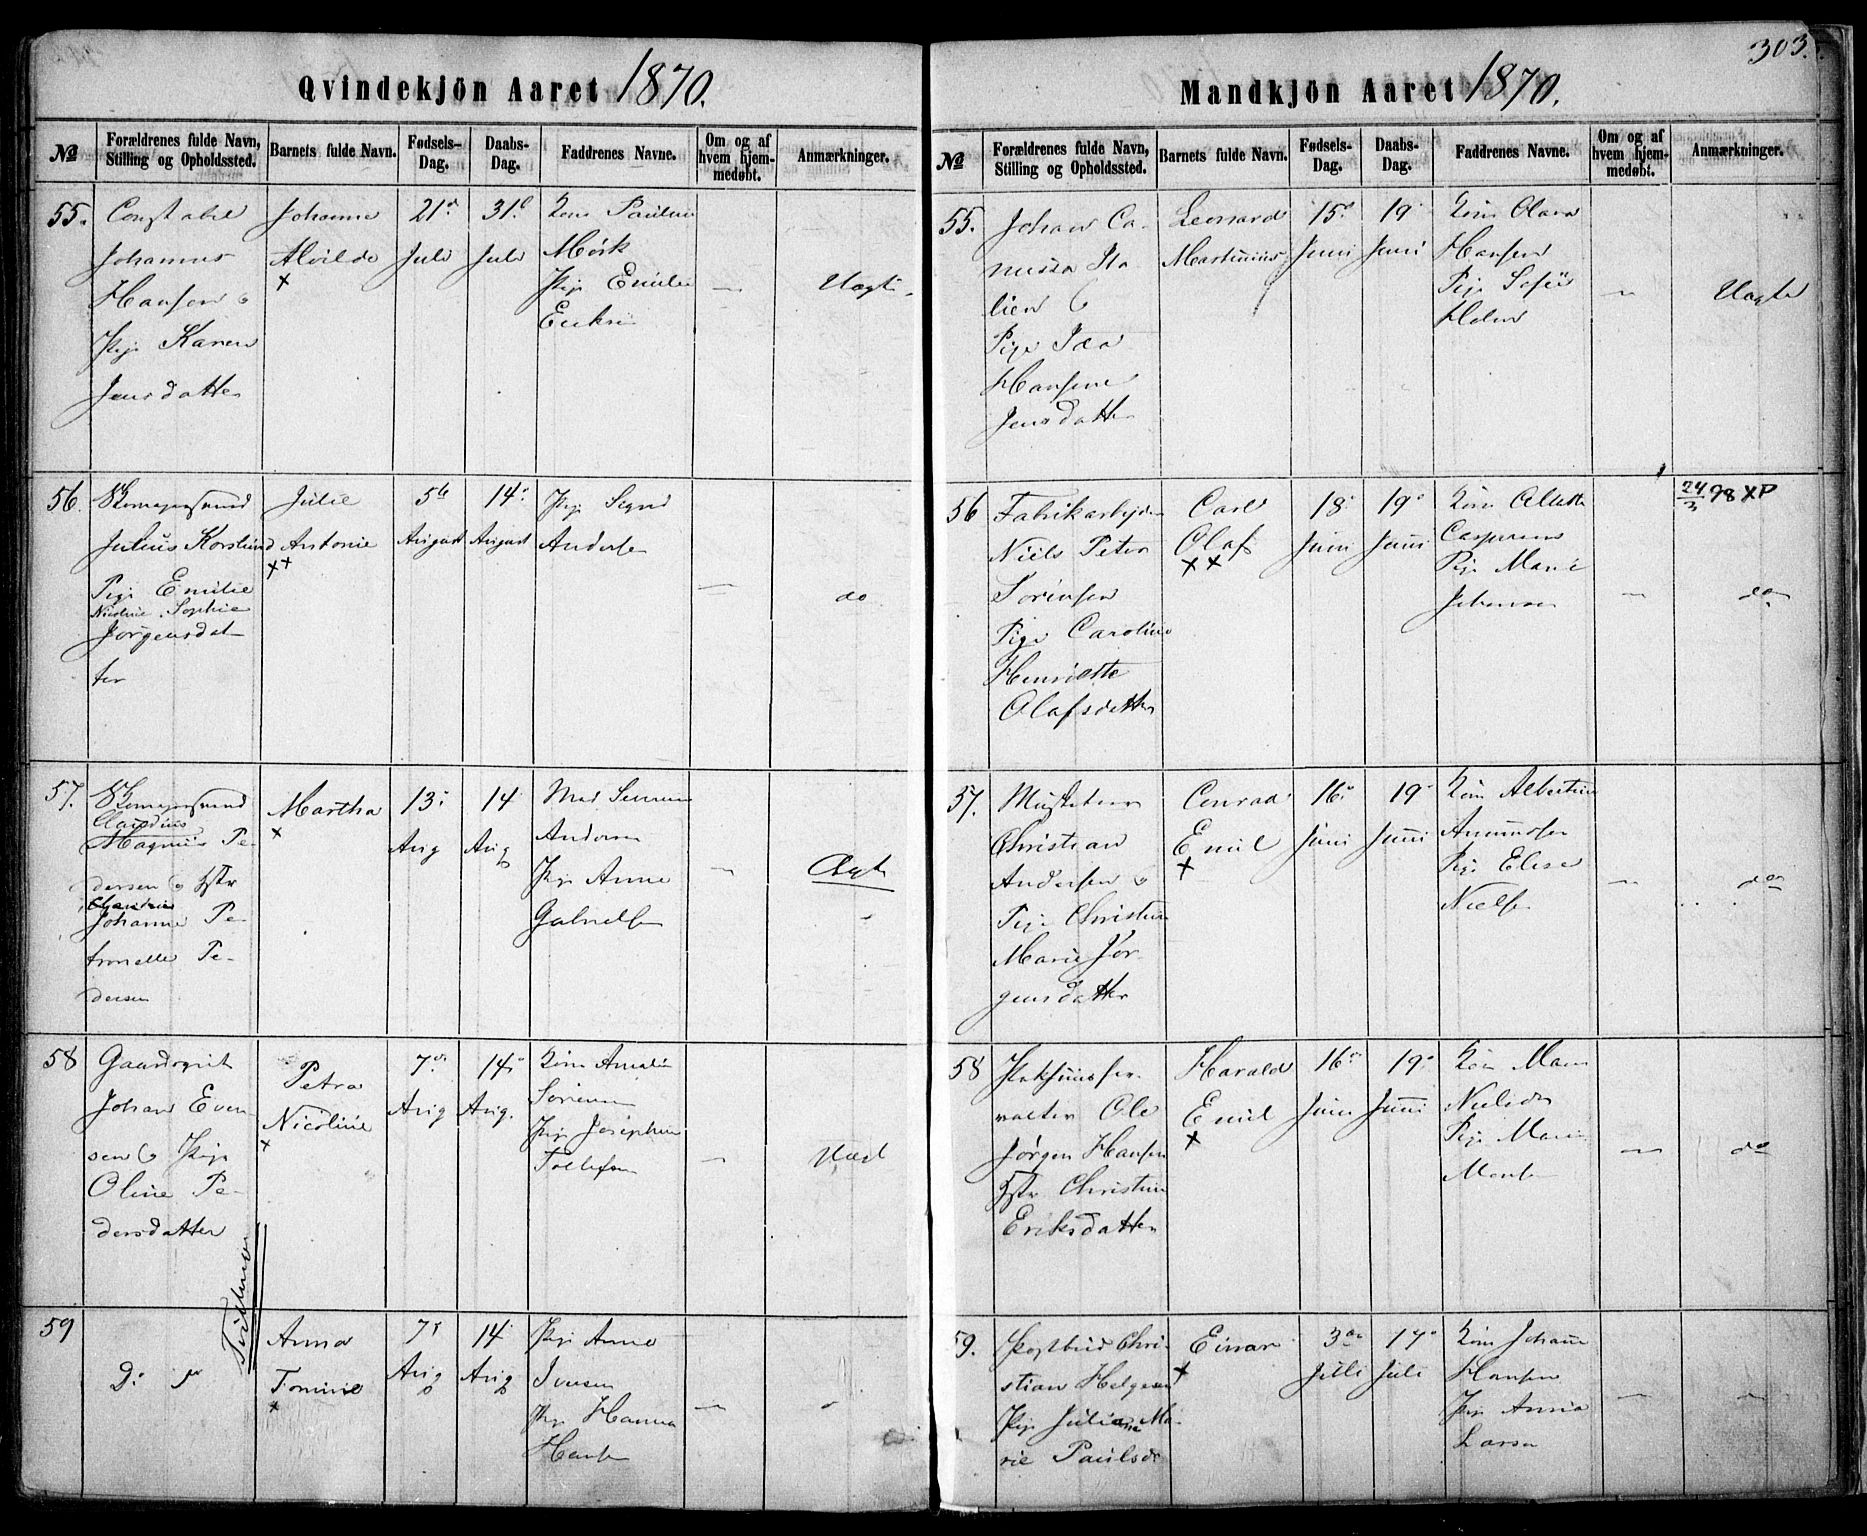 303.
Qvindekjön Aaret 1870.
No
Forældrenes fulde Navn,
Stilling og Opholdssted.
Barnets fulde Navn.
Fødsels-
Dag.
Daabs-
Dag.
Faddrenes Navne.
Om og af
hvem hjem-
medøbt.
Anmærkninger.
55.
Constabel
Johannes
Hansen
Pige Karen
Jensdatter
Johanne
Alvilde
×
21
Juli
31
Juli
Kone
Mørk
Pige Emilie
—
Uægte
56.
Julius
Pige Emilie
Nicoline Sophie
Jørgensdat
ter
Julie
Antonie
××
5te
August
14
August
Pige
Anders
—
do
57.
Claudius
Magnus Pe-
dersen Hstr
Johanne Pe-
tronelle Pe-
dersen
Martha
×
13
Aug
14
Aug
Anders
Pige Anne
Gabriels
—
Ægte
58
Johan Even-
sen Pige
Oline Pe-
dersdatter
Petra
Nicoline
×
7
Aug
14
Aug.
Kone Amalie
Pige Josephine
—
Uægte
Tvillinger
59
Do
Anna
×
7
Aug
14
Aug
Pige Anne
Iversen
Pige Hanna
Hans
—
Mandkjön Aaret 1870.
No
Forældrenes fulde Navn,
Stilling og Opholdssted.
Barnets fulde Navn.
Fødsels-
Dag.
Daabs-
Dag.
Faddrenes Navne.
Om og af
hvem hjem-
medøbt.
Anmærkninger.
55.
Johan Ca-
nussa Ita
lien
Pige Ida
Hansine
Jensdatter
Leonard
Martinius
15
Juni
19
Juni
Kone Olava
Hansen
Pige Sofie
—
Uægte
56
Fabrikarbejder
Niels Peter
Sørensen
Pige Caroline
Henriette
Olafsdatter
Carl
Olaf
××
18
Juni
19
Juni
Kone
Pige Marie
Johansen
—
24/3 98 XP
do
57.
Christian
Andersen
Pige Christine
Marie Jør-
gensdatter
Conrad
Emil
×
16
Juni
19
Juni
Kone Albertine
Pige Elise
Niels
—
do
58
valter Ole
Jørgen Hansen
Hstr Christine
Eriksdatter
Harald
Emil
×
16
Juni
19
Juni
Kone Maren
Pige Marie
—
do
59.
Postbud Chri-
stian Helgesen
Pige Juliane Ma-
rie Paulsd
Einar
×
3
Juli
17
Juli
Kone Johanne
Hansen
Pige Anna
Larsen
—
—